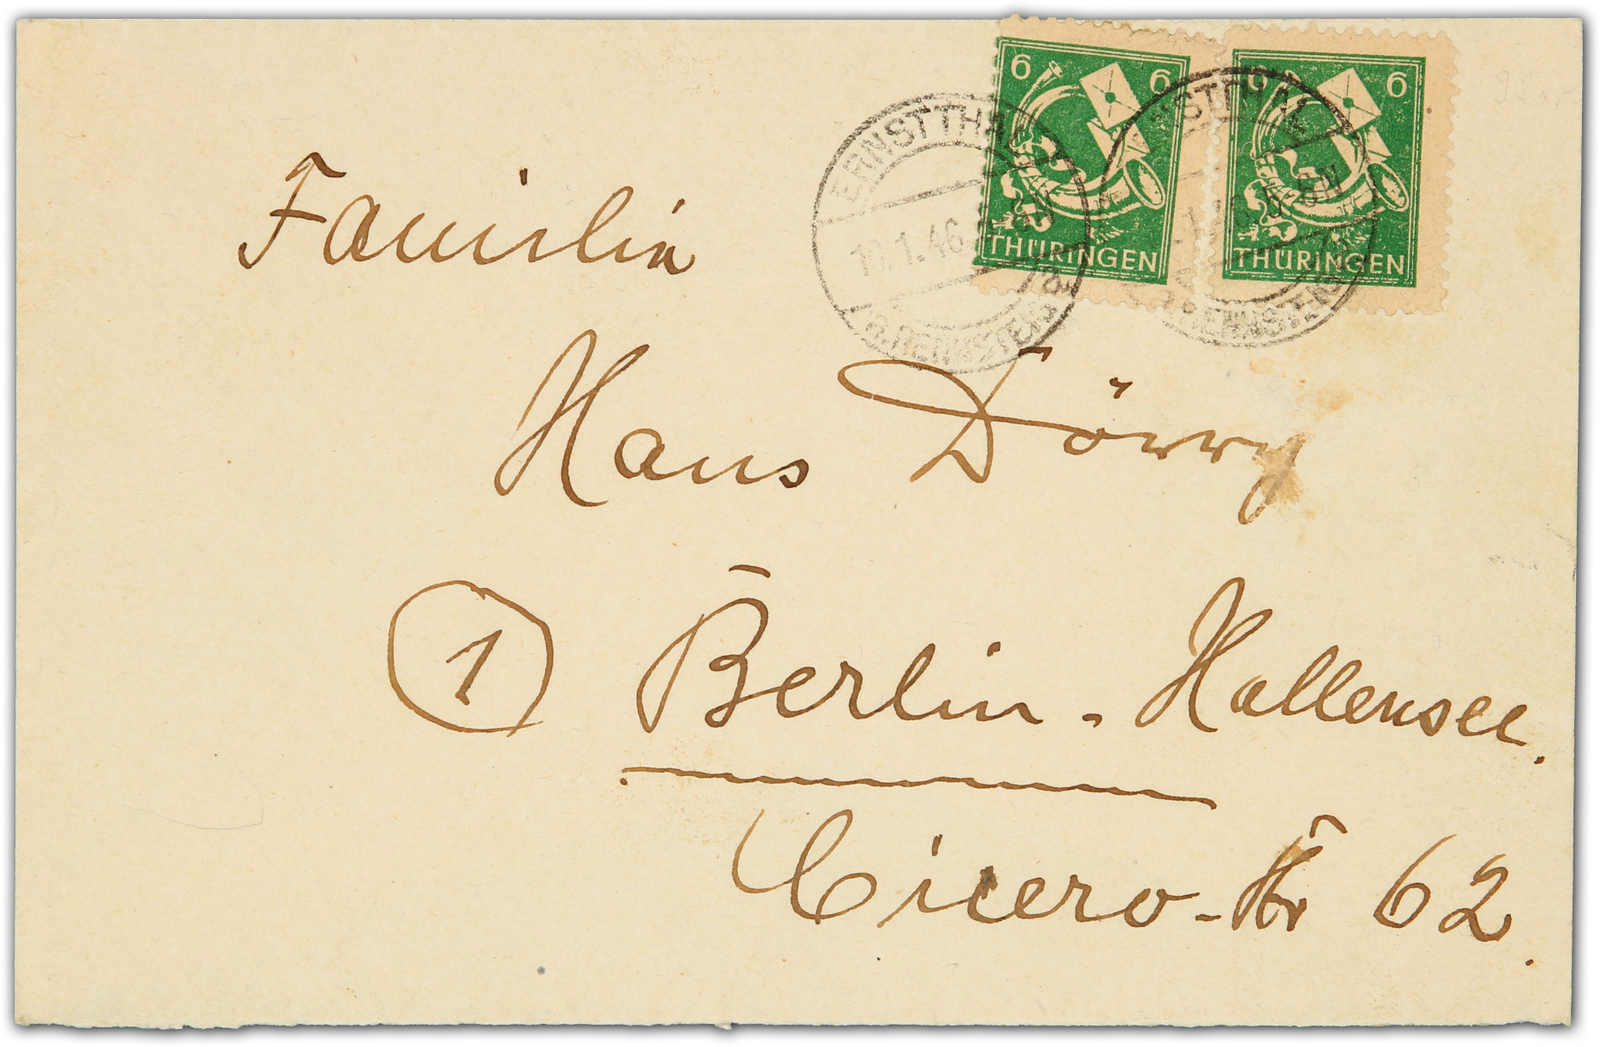 6 6
THÜRINGEN
6 6
THÜRINGEN
ERNSTTHAL
.1.46
Familie
Hans Dörry
1 Berlin-Halensee.
Cicero-Str 62.